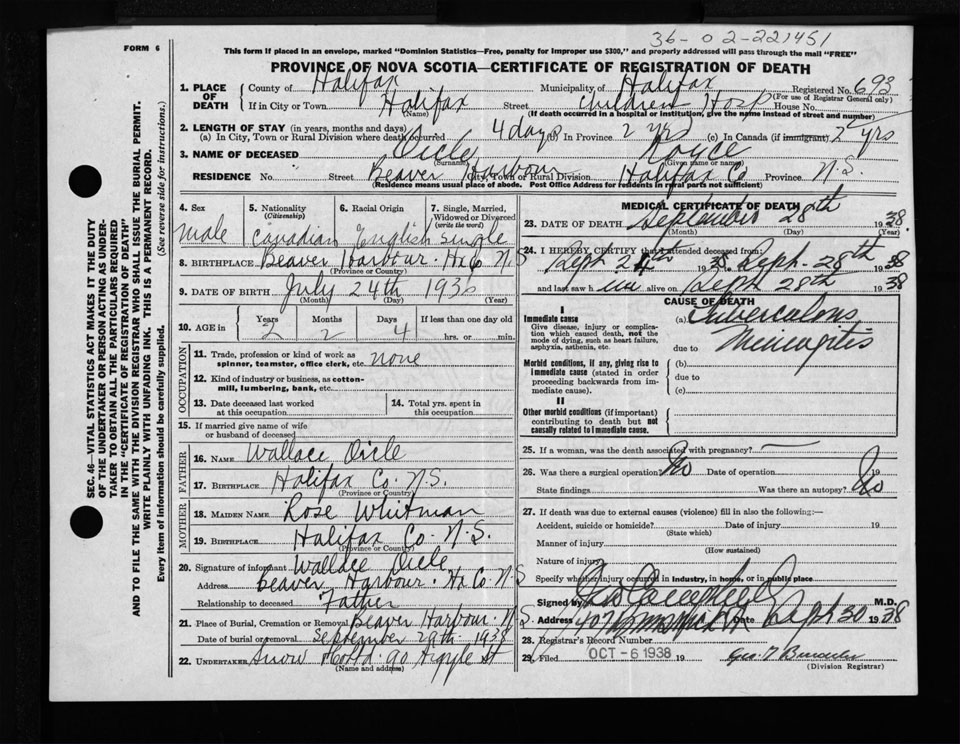 36-02-221451
FORM 6
This form if placed in an envelope, marked "Dominion Statistics—Free, penalty for improper use $300," and properly addressed will pass through the mail "FREE"
PROVINCE OF NOVA SCOTIA—CERTIFICATE OF REGISTRATION OF DEATH
SEC. 46—VITAL STATISTICS ACT MAKES IT THE DUTY
OF THE UNDERTAKER OR PERSON ACTING AS UNDER-
TAKER TO OBTAIN ALL THE PARTICULARS REQUIRED
IN THE "CERTIFICATE OF REGISTRATION OF DEATH"
AND TO FILE THE SAME WITH THE DIVISION REGISTRAR WHO SHALL ISSUE THE BURIAL PERMIT.
WRITE PLAINLY WITH UNFADING INK. THIS IS A PERMANENT RECORD.
Every item of information should be carefully supplied. (See reverse side for instructions.)
1. PLACE OF DEATH County of Halifax Municipality of Halifax Registered No. 693
(For use of Registrar General only)
If in City or Town Halifax Street Childrens Hosp House No.
(Name) (If death occurred in a hospital or institution, give the name instead of street and number)
2. LENGTH OF STAY (in years, months and days)
(a) In City, Town or Rural Division where death occurred 4 days (b) In Province 2 yrs (c) In Canada (if immigrant) 2 yrs
3. NAME OF DECEASED Oicle Royce
(Surname) (Given name or names)
RESIDENCE No. Street Beaver Harbour City, Town or Rural Division Halifax Co Province N.S.
(Residence means usual place of abode. Post Office Address for residents in rural parts not sufficient)
4. Sex male
5. Nationality (Citizenship) Canadian
6. Racial Origin English
7. Single, Married, Widowed or Divorced (write the word) single
8. BIRTHPLACE Beaver Harbour. Hx Co N.S
(Province or Country)
9. DATE OF BIRTH July 24th 1936
(Month) (Day) (Year)
10. AGE in Years 2 Months 2 Days 4 If less than one day old hrs. or min.
OCCUPATION
11. Trade, profession or kind of work as spinner, teamster, office clerk, etc. none
12. Kind of industry or business, as cotton-mill, lumbering, bank, etc.
13. Date deceased last worked at this occupation
14. Total yrs. spent in this occupation
15. If married give name of wife or husband of deceased
FATHER
16. NAME Wallace Oicle
17. BIRTHPLACE Halifax Co. N.S.
(Province or Country)
MOTHER
18. MAIDEN NAME Rose Whitman
19. BIRTHPLACE Halifax Co. N.S.
(Province or Country)
20. Signature of informant Wallace Oicle
Address Beaver Harbour. Hx Co. N.S
Relationship to deceased Father
21. Place of Burial, Cremation or Removal Beaver Harbour N.S.
Date of burial or removal September 29th 1938
22. UNDERTAKER Snow & Co Ltd. 90 Argyle St
(Name and address)
MEDICAL CERTIFICATE OF DEATH
23. DATE OF DEATH September 28th 1938
(Month) (Day) (Year)
24. I HEREBY CERTIFY that I attended deceased from:
Sept 24th 38 Sept. 28th 1938
and last saw h im alive on Sept 28th 1938
CAUSE OF DEATH
I
Immediate cause
Give disease, injury or complication which caused death, not the mode of dying, such as heart failure, asphyxia, asthenia, etc.
(a) Tuberculous
due to Meningitis
Morbid conditions, if any, giving rise to immediate cause (stated in order proceeding backwards from immediate cause).
(b)
due to
(c)
II
Other morbid conditions (if important) contributing to death but not causally related to immediate cause.
25. If a woman, was the death associated with pregnancy? —
26. Was there a surgical operation? No Date of operation 19
State findings Was there an autopsy? No
27. If death was due to external causes (violence) fill in also the following:—
Accident, suicide or homicide? Date of injury 19
(State which)
Manner of injury
(How sustained)
Nature of injury
Specify whether injury occurred in industry, in home, or in public place
Signed by M.D.
Address 407 Date Sept 30 1938
28. Registrar's Record Number
29. Filed OCT -6 1938 19 Geo.
(Division Registrar)